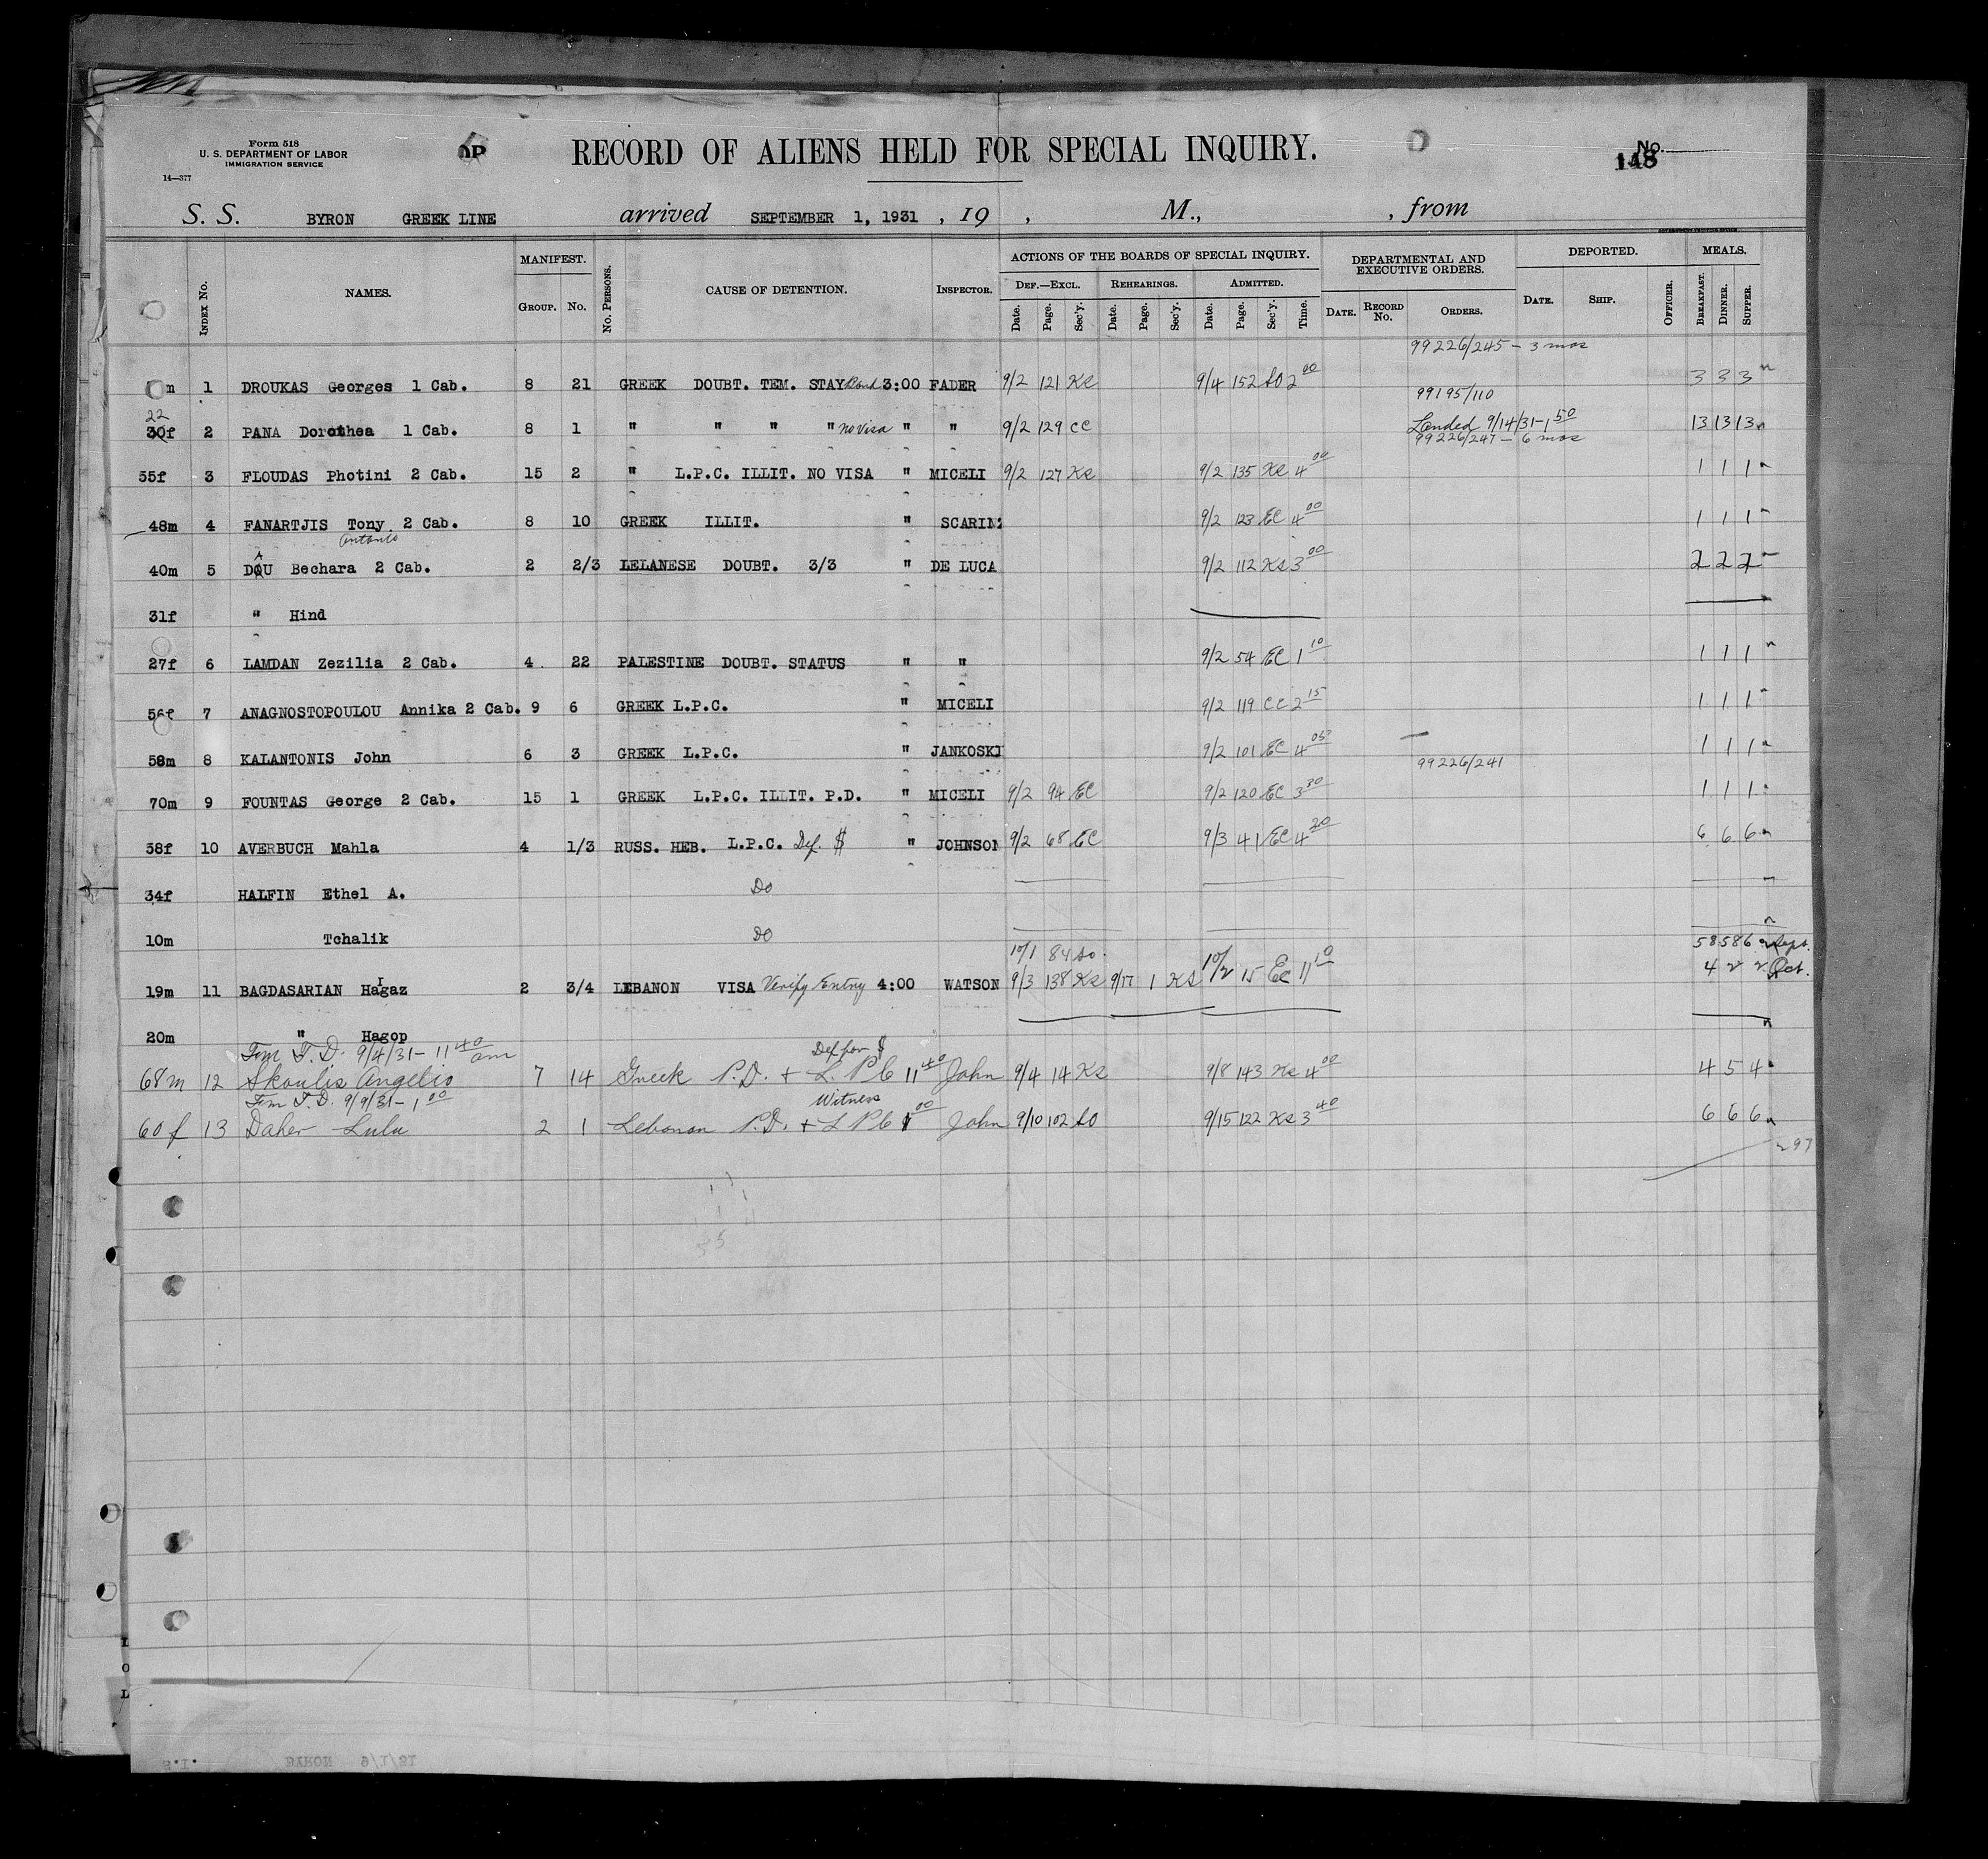 Form 518
U. S. DEPARTMENT OF LABOR
IMMIGRATION SERVICE
14—377
RECORD OF ALIENS HELD FOR SPECIAL INQUIRY.
No.
148
S. S. BYRON GREEK LINE arrived SEPTEMBER 1, 1931 , 19 , M., , from
INDEX No. NAMES. MANIFEST. GROUP. No. No. PERSONS. CAUSE OF DETENTION. INSPECTOR. ACTIONS OF THE BOARDS OF SPECIAL INQUIRY. DEPARTMENTAL AND EXECUTIVE ORDERS. DEPORTED. MEALS.
DEF.—EXCL. REHEARINGS. ADMITTED.
Date. Page. Sec'y. Date. Page. Sec'y. Date. Page. Sec'y. Time. DATE. RECORD No. ORDERS. DATE. SHIP. OFFICER. BREAKFAST. DINNER. SUPPER.
99226/245 - 3 mos
m 1 DROUKAS Georges 1 Cab. 8 21 GREEK DOUBT. TEM. STAY Bond 3:00 FADER 9/2 121 Ks 9/4 152 so 2 00 3 3 3
99195/110
22
30f 2 PANA Dorothea 1 Cab. 8 1 " " " " no visa " " 9/2 129 CC Landed 9/14/31-1 50 13 13 13
99226/247 - 6 mos
55f 3 FLOUDAS Photini 2 Cab. 15 2 " L.P.C. ILLIT. NO VISA " MICELI 9/2 127 Ks 9/2 135 Ks 4 00 1 1 1
48m 4 FANARTJIS Tony 2 Cab. 8 10 GREEK ILLIT. " SCARIN 9/2 123 EC 4 00 1 1 1
Antonio
40m 5 DAU Bechara 2 Cab. 2 2/3 LELANESE DOUBT. 3/3 " DE LUCA 9/2 112 Ks 3 00 2 2 2
31f " Hind
27f 6 LAMDAN Zezilia 2 Cab. 4 22 PALESTINE DOUBT. STATUS " " 9/2 54 EC 1 10 1 1 1
56f 7 ANAGNOSTOPOULOU Annika 2 Cab. 9 6 GREEK L.P.C. " MICELI 9/2 119 CC 2 15 1 1 1
58m 8 KALANTONIS John 6 3 GREEK L.P.C. " JANKOSKI 9/2 101 EC 4 05 1 1 1
99226/241
70m 9 FOUNTAS George 2 Cab. 15 1 GREEK L.P.C. ILLIT. P.D. " MICELI 9/2 94 EC 9/2 120 EC 3 30 1 1 1
58f 10 AVERBUCH Mahla 4 1/3 RUSS. HEB. L.P.C. Def. $ " JOHNSON 9/2 68 EC 9/3 41 EC 4 20 6 6 6
34f HALFIN Ethel A. Do
10m Tchalik Do
10/1 84 so 58 58 6 Sept.
19m 11 BAGDASARIAN Hagaz 2 3/4 LEBANON VISA Verify Entry 4:00 WATSON 9/3 138 Ks 9/17 1 KS 10/2 15 EC 11 10 4 2 2 Oct.
20m " Hagop
Fom T.D. 9/4/31- 11 40 am Def for $
68m 12 Skoulis Angelis 7 14 Greek P.D. + L.P.C 11 40 John 9/4 14 Ks 9/8 143 Ks 4 00 4 5 4
Fom T.D. 9/9/31- 1 00 Witness
60f 13 Daher Lulu 2 1 Lebanon P.D. + LPC 1 00 John 9/10 102 so 9/15 122 Ks 3 40 6 6 6
297
BYRON 9/1/31